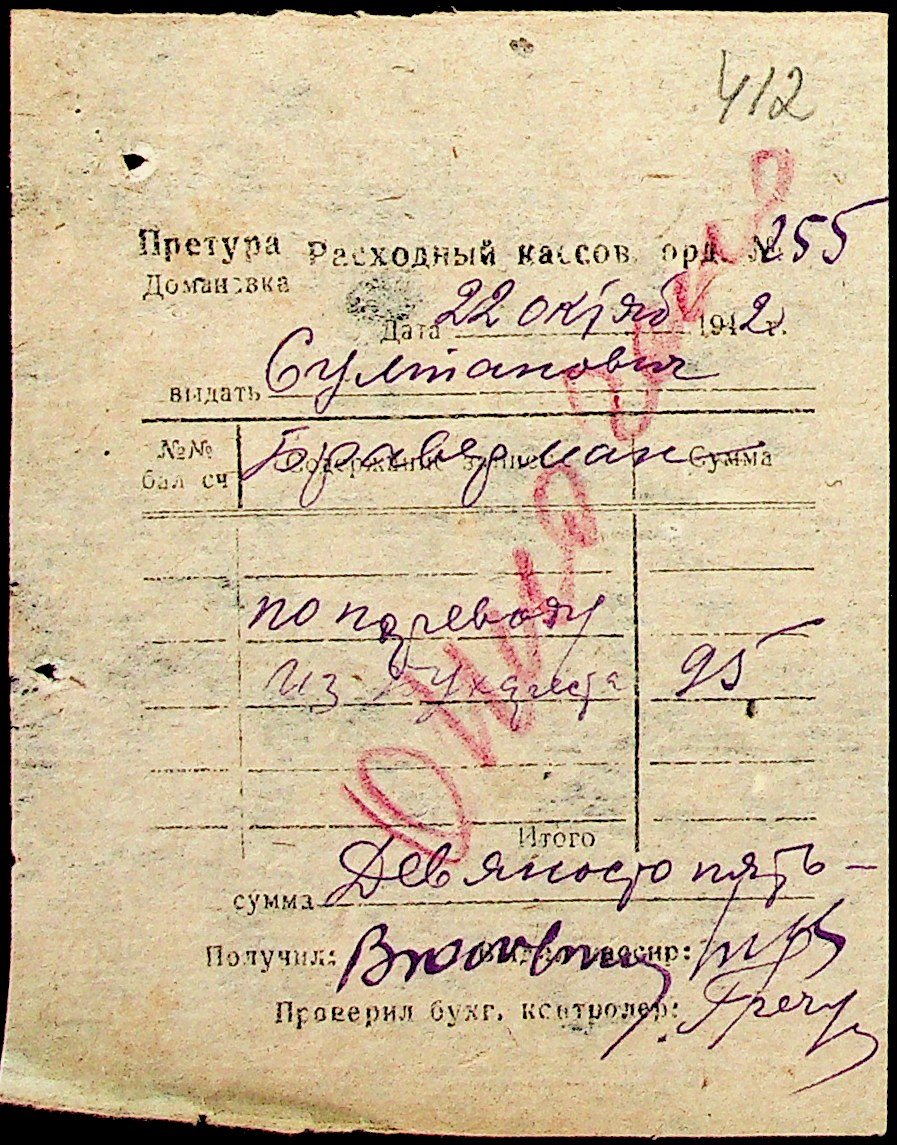 412
Претура Расходный кассов. орд. № 255
Домановка
Дата 22 октяб 1942 г.
выдать Султанович
№№ бал сч Содержание Сумма
Браверман
по переводу
из Бухареста 95
Итого
сумма Девяносто пять —
Получил: Выдал кассир:
Проверил бухг. контролер: